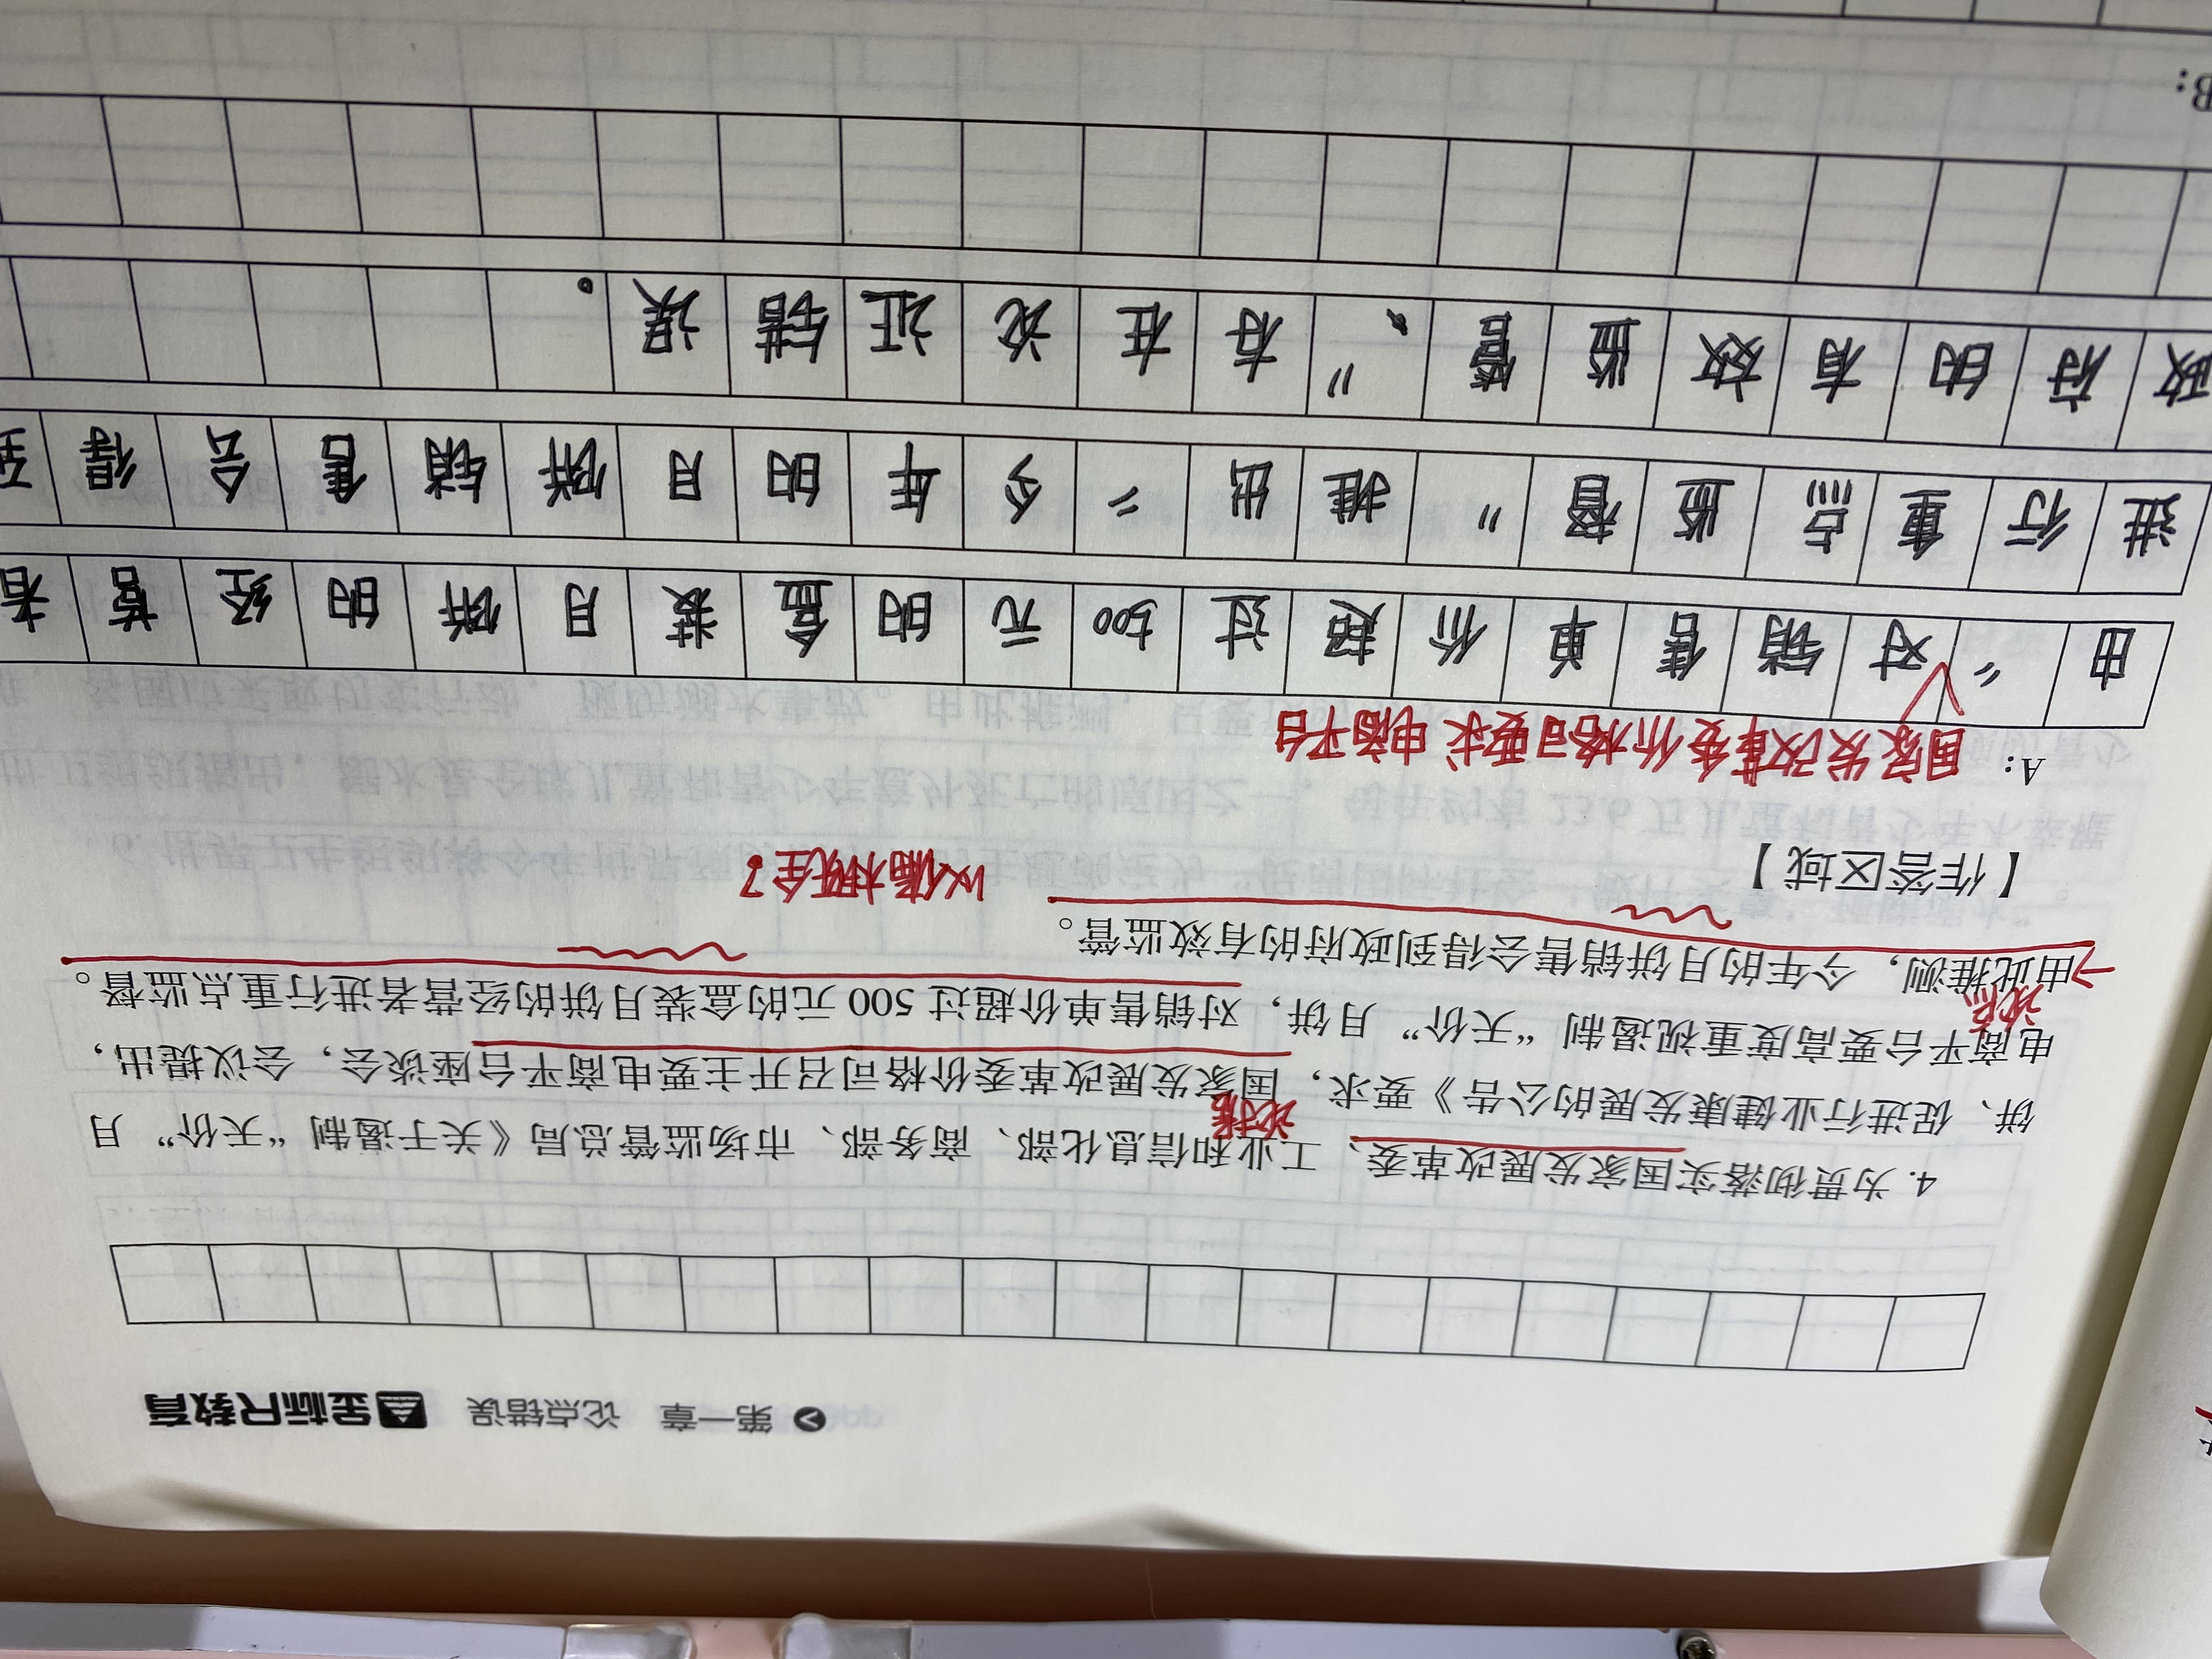 第一章 论点错误 金标尺教育
4. 为贯彻落实国家发展改革委、工业和信息化部、商务部、市场监管总局《关于遏制“天价”月
论据
饼、促进行业健康发展的公告》要求，国家发展改革委价格司召开主要电商平台座谈会，会议提出，
电商平台要高度重视遏制“天价”月饼，对销售单价超过 500 元的盒装月饼的经营者进行重点监督。
论点
由此推测，今年的月饼销售会得到政府的有效监管。
以偏概全？
【作答区域】
A：
国家发改革委价格司要求电商平台
由“对销售单价超过500元的盒装月饼的经营者
进行重点监督”推出“今年的月饼销售会得到
政府的有效监管”，存在论证错误。
B：